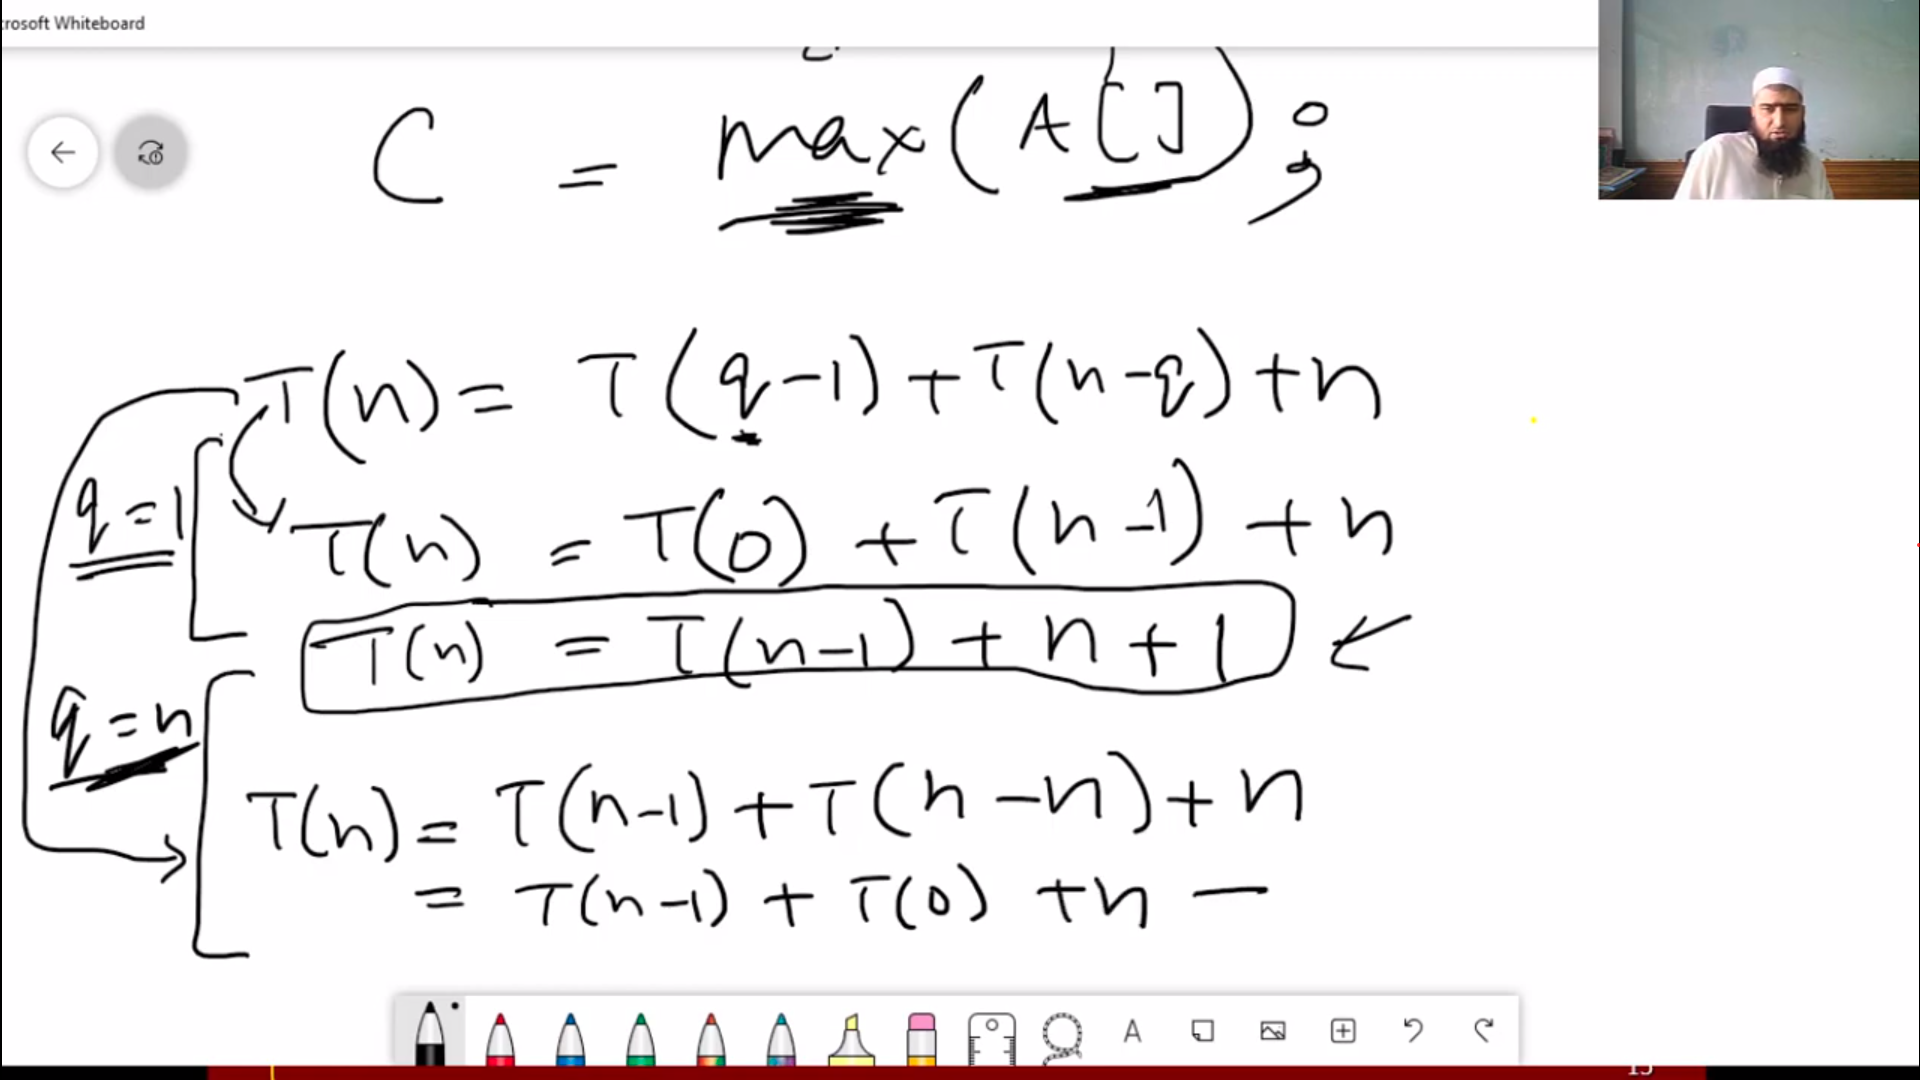 crosoft Whiteboard
C = max(A[]);
T(n) = T(q-1) + T(n-q) + n
q=1
T(n) = T(0) + T(n-1) + n
T(n) = T(n-1) + n + 1
q=n
T(n) = T(n-1) + T(n-n) + n
= T(n-1) + T(0) + n —
A